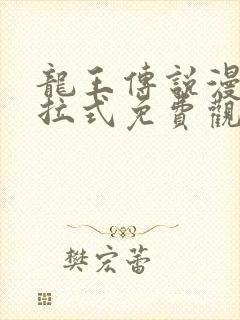 龍王傳說漫
拉式免費觀
樊宏蕾